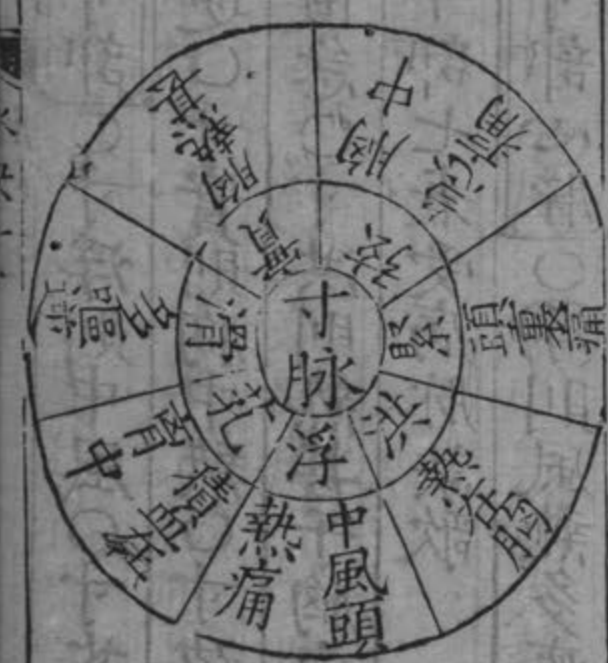 寸脉
浮
中風頭
熱痛
芤
積血在
胷中
滑
多嘔
實
胸熱甚
弦
胸中
急痛
緊
頭裏痛
洪
熱在胸